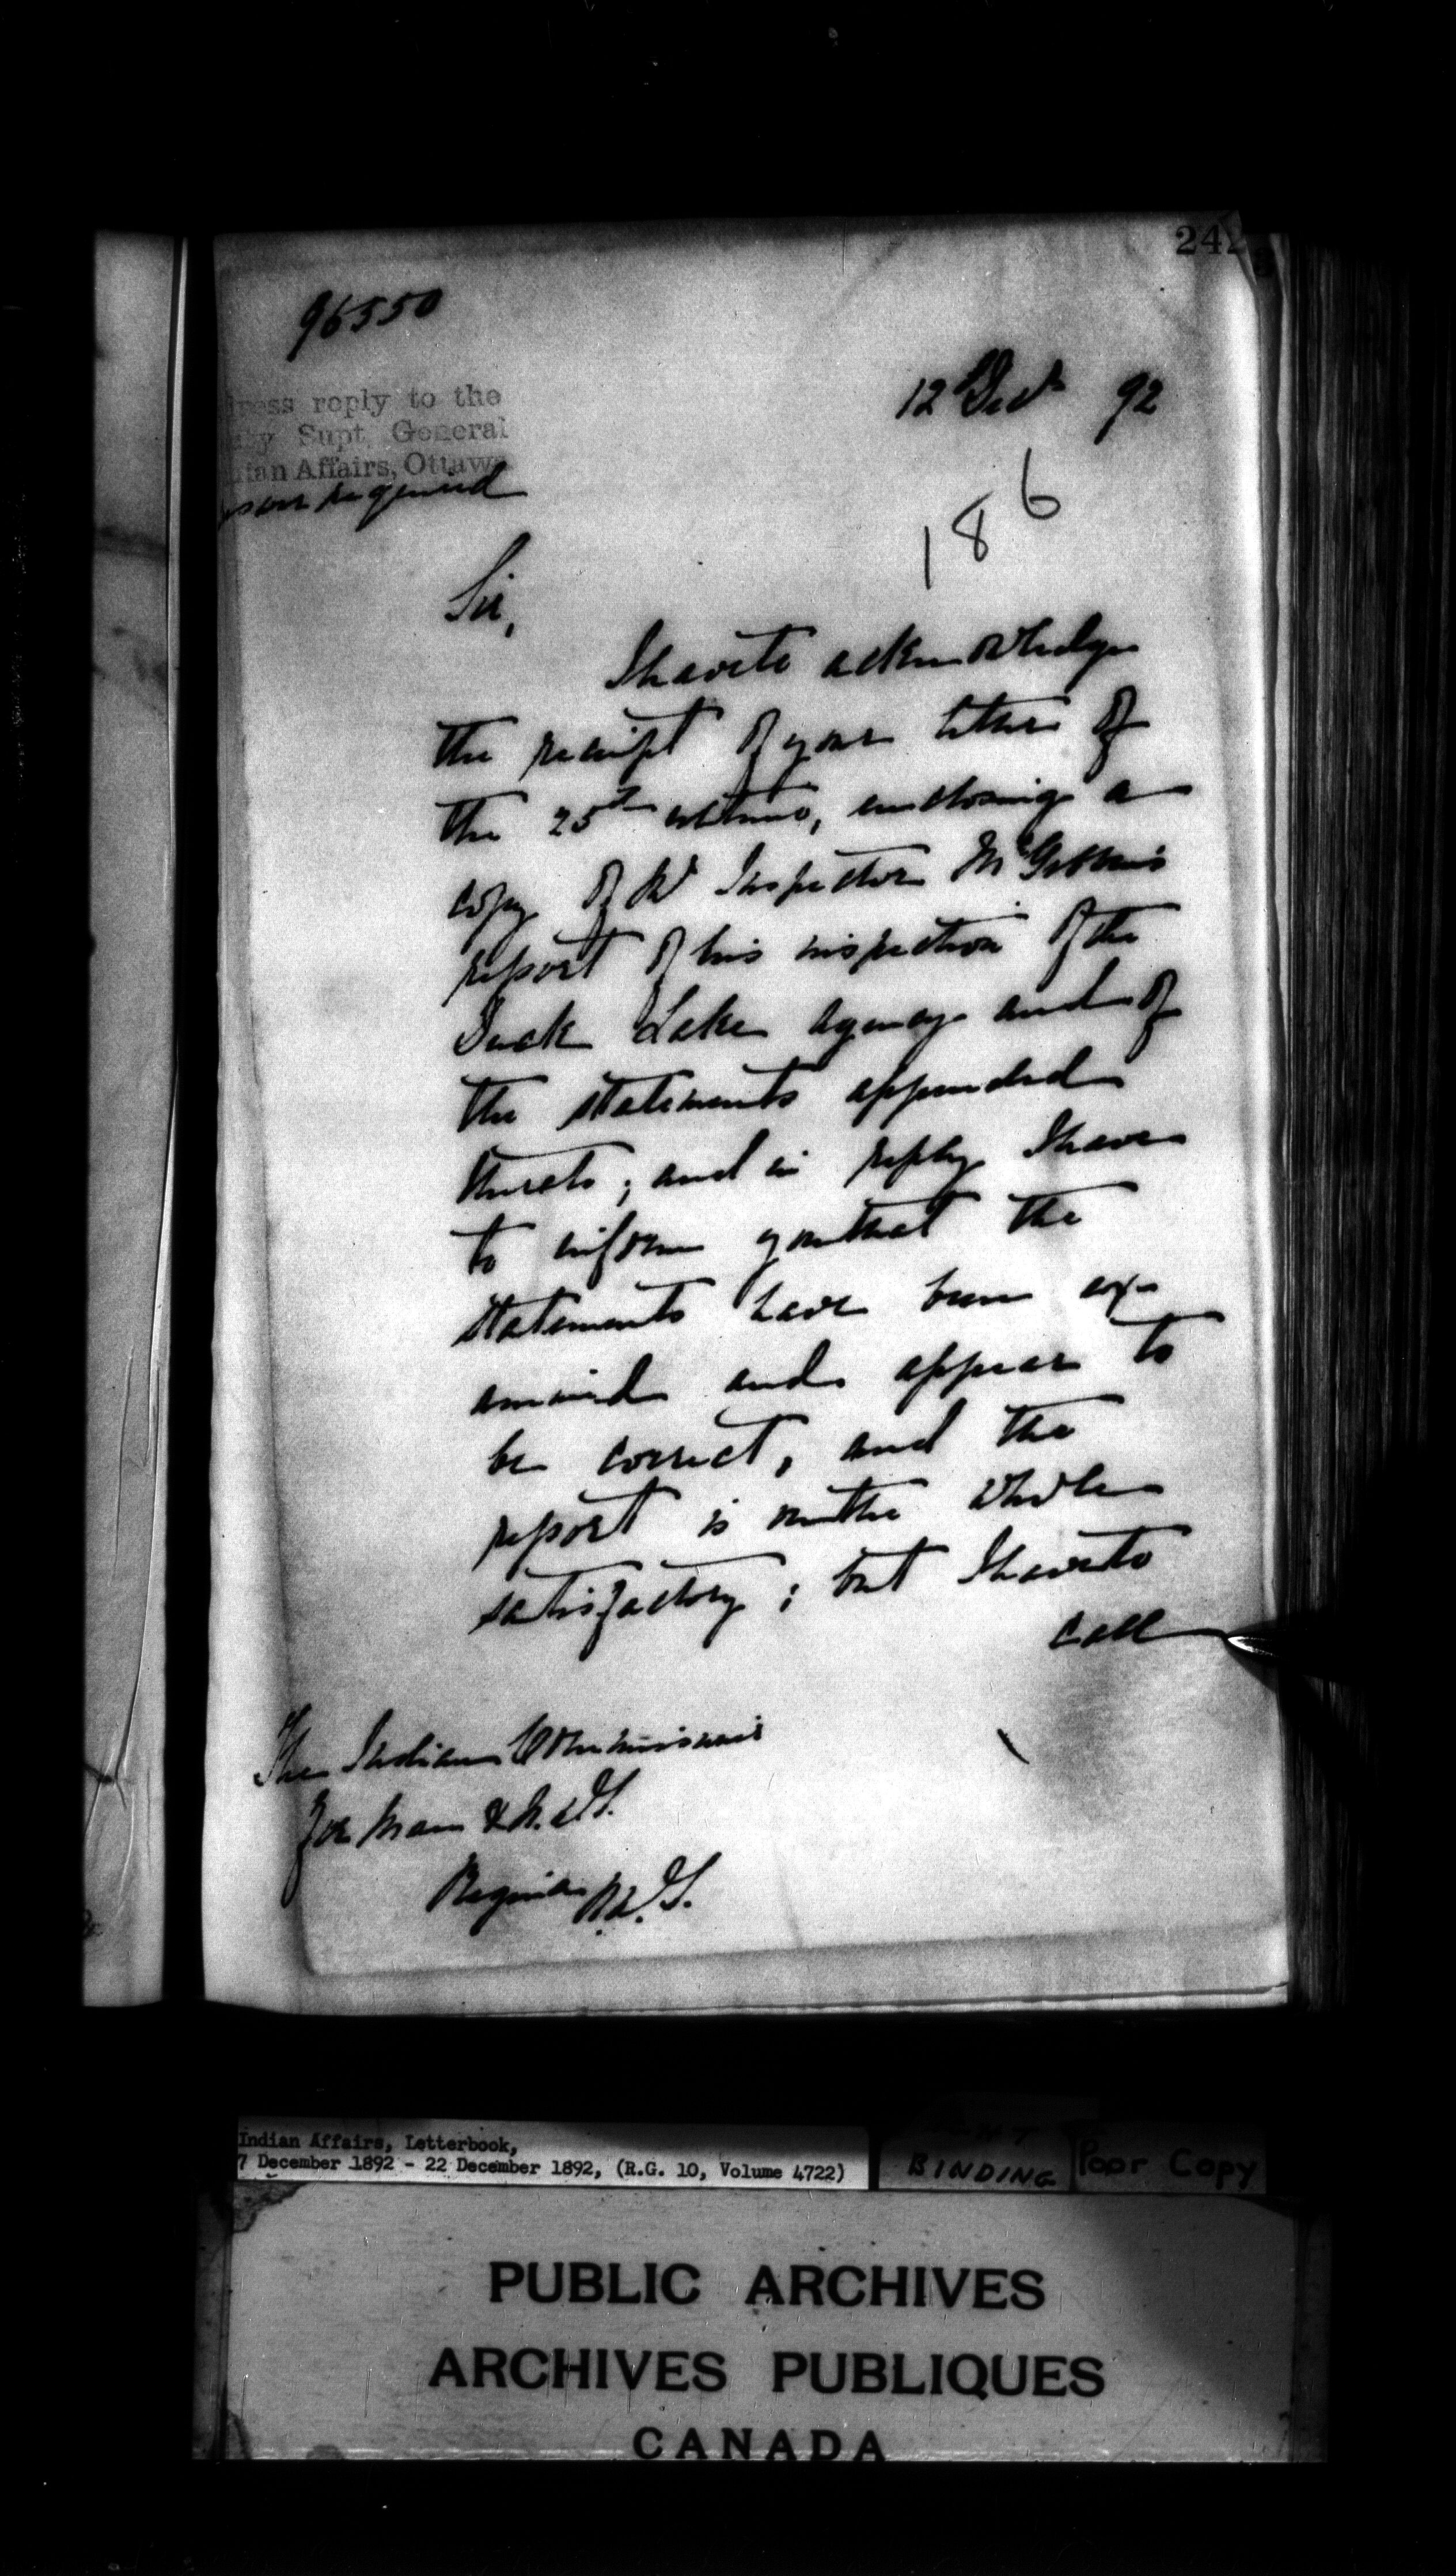 242
96550
12 Decr 92
ress reply to the
uty Supt. General
ian Affairs, Ottawa
186
Sir,
I have to acknowledge
the receipt of your letter of
the 25th ultimo, enclosing a
copy of Mr Inspector McGibbon's
report of his inspection of the
Duck Lake Agency and of
the statements appended
thereto; and in reply I have
to inform you that the
statements have been ex-
amined and appear to
be correct, and the
report is on the whole
satisfactory; but I have to
call
The Indian Commissioner
for Man & N.W.T.
Regina N.W.T.
Indian Affairs, Letterbook,
7 December 1892 - 22 December 1892, (R.G. 10, Volume 4722)
BINDING
Poor Copy
PUBLIC ARCHIVES
ARCHIVES PUBLIQUES
CANADA